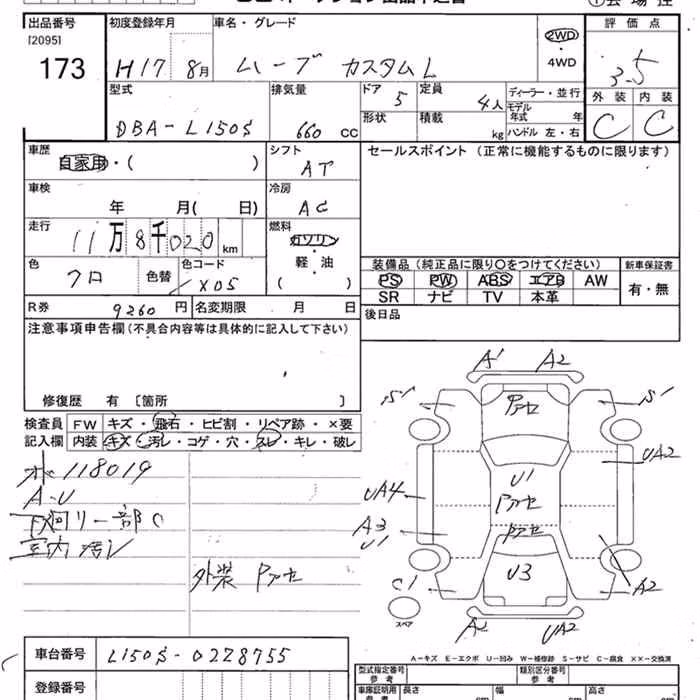 出品番号 初度登録年月 車名・グレード 2WD 評価点
[2095] 173 H17 8月 ムーブ カスタムL ・ 4WD 3.5
型式 排気量 ドア 定員 ディーラー・並行 外装 内装
DBA-L150S 660cc 5 4人 モデル年式 年 C C
形状 積載 kg ハンドル 左・右
車歴 シフト セールスポイント (正常に機能するものに限ります)
自家用・( ) AT
車検 冷房
年 月( 日) AC
走行 燃料
11万8千020km ガソリン
軽・油
( )
色 色替 色コード 装備品(純正品に限り○をつけてください) 新車保証書
クロ X05 PS PW ABS エアB AW 有・無
SR ナビ TV 本革
R券 9260円 名変期限 月 日 後日品
注意事項申告欄(不具合内容等は具体的に記入して下さい)
修復歴 有 [箇所 ]
検査員 FW キズ・飛石・ヒビ割・リペア跡・×要
記入欄 内装 キズ・汚レ・コゲ・穴・スレ・キレ・破レ
118019
A-U
下廻リ一部C
室内汚レ
外装 Pアセ
A1 A2
S1 Pアセ S1
U1 UA2
UA4 Pアセ
A3 Pアセ
U1
C1 U3 A2
スペア A2 UA2
A-キズ E-エクボ U-凹み W-補修跡 S-サビ C-腐食 ××-交換済
車台番号 L150S-0228755
型式指定番号 参考 類別区分番号 参考
登録番号 車庫証明用 参考 長さ cm 幅 cm 高さ cm